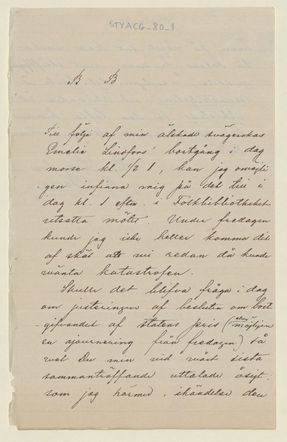 STYACG_80_1
B B
Till följe af min älskade svägerskas
Emelie Lindfors' bortgång i dag
morse kl. 1/2 1, kan jag omöjli-
gen infinna mig på det till i
dag kl. 1 efterm. i Folkbiblioteket
utsatta mötet. Under fredagen
kunde jag icke heller komma dit
af skäl att vi redan då kunde
vänta katastrofen.
Skulle det blifva fråga i dag
om justeringen af besluten om bort-
gifvandet af statens pris (eller möjligen
en ajournering från fredagen) så
vet Du min vid vårt sista
sammanträffande uttalade åsigt,
som jag härmed, i händelse den